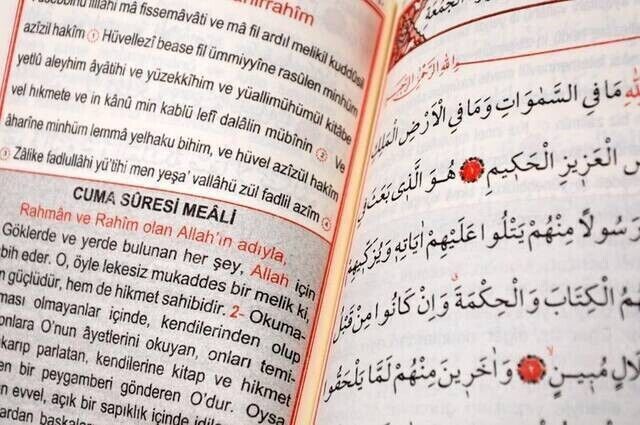 fissemâvâti ve mâ fil ardıl melikil kuddûsil
azîzil hakîm 1 Hüvellezî bease fil ümmiyyîne rasûlen minhüm
yetlû aleyhim âyâtihi ve yüzekkîhim ve yüallimühümül kitâbe
vel hıkmete ve in kânû min kablü lefî dalâlin mübînin 2 Ve
âharîne minhüm lemmâ yelhaku bihim, ve hüvel azîzül hakîm
3 Zâlike fadlullâhi yü'tîhi men yeşa' vallâhü zül fadlil azîm 4
CUMA SÛRESİ MEÂLİ
Rahmân ve Rahîm olan Allah'ın adıyla,
Göklerde ve yerde bulunan her şey, Allah için
bih eder. O, öyle lekesiz mukaddes bir melik ki,
güçlüdür, hem de hikmet sahibidir. 2- Okuma-
ması olmayanlar içinde, kendilerinden olup
onlara O'nun âyetlerini okuyan, onları temi-
karıp parlatan, kendilerine kitap ve hikmet
en bir peygamberi gönderen O'dur. Oysa
evvel, açık bir sapıklık içinde
مَا فِي السَّمٰوَاتِ وَمَا فِي الْاَرْضِ الْمَلِكِ
الْعَزِيزِ الْحَكِيمِ ١ هُوَ الَّذٖي بَعَثَ فِي
رَسُولاً مِنْهُمْ يَتْلُوا عَلَيْهِمْ اٰيَاتِهٖ وَيُزَكّٖيهِمْ
الْكِتَابَ وَالْحِكْمَةَ وَاِنْ كَانُوا مِنْ قَبْلُ
مُبٖينٍ ٢ وَاٰخَرٖينَ مِنْهُمْ لَمَّا يَلْحَقُوا